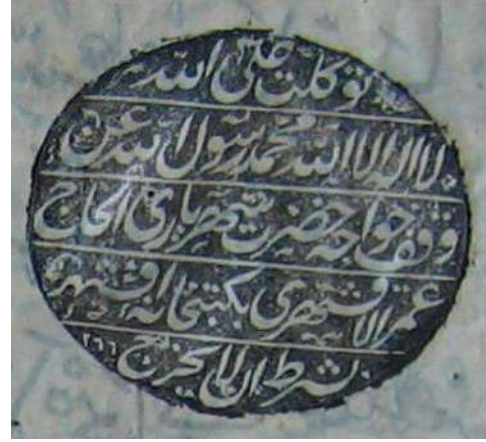 توكلت على الله
لا اله الا الله محمد رسول الله
وقف خواجه حضرت شهرياري الحاج
عمر الاقشهري بكتبخانه اقشهر
بشرط ان لا يخرج ٢٦٦